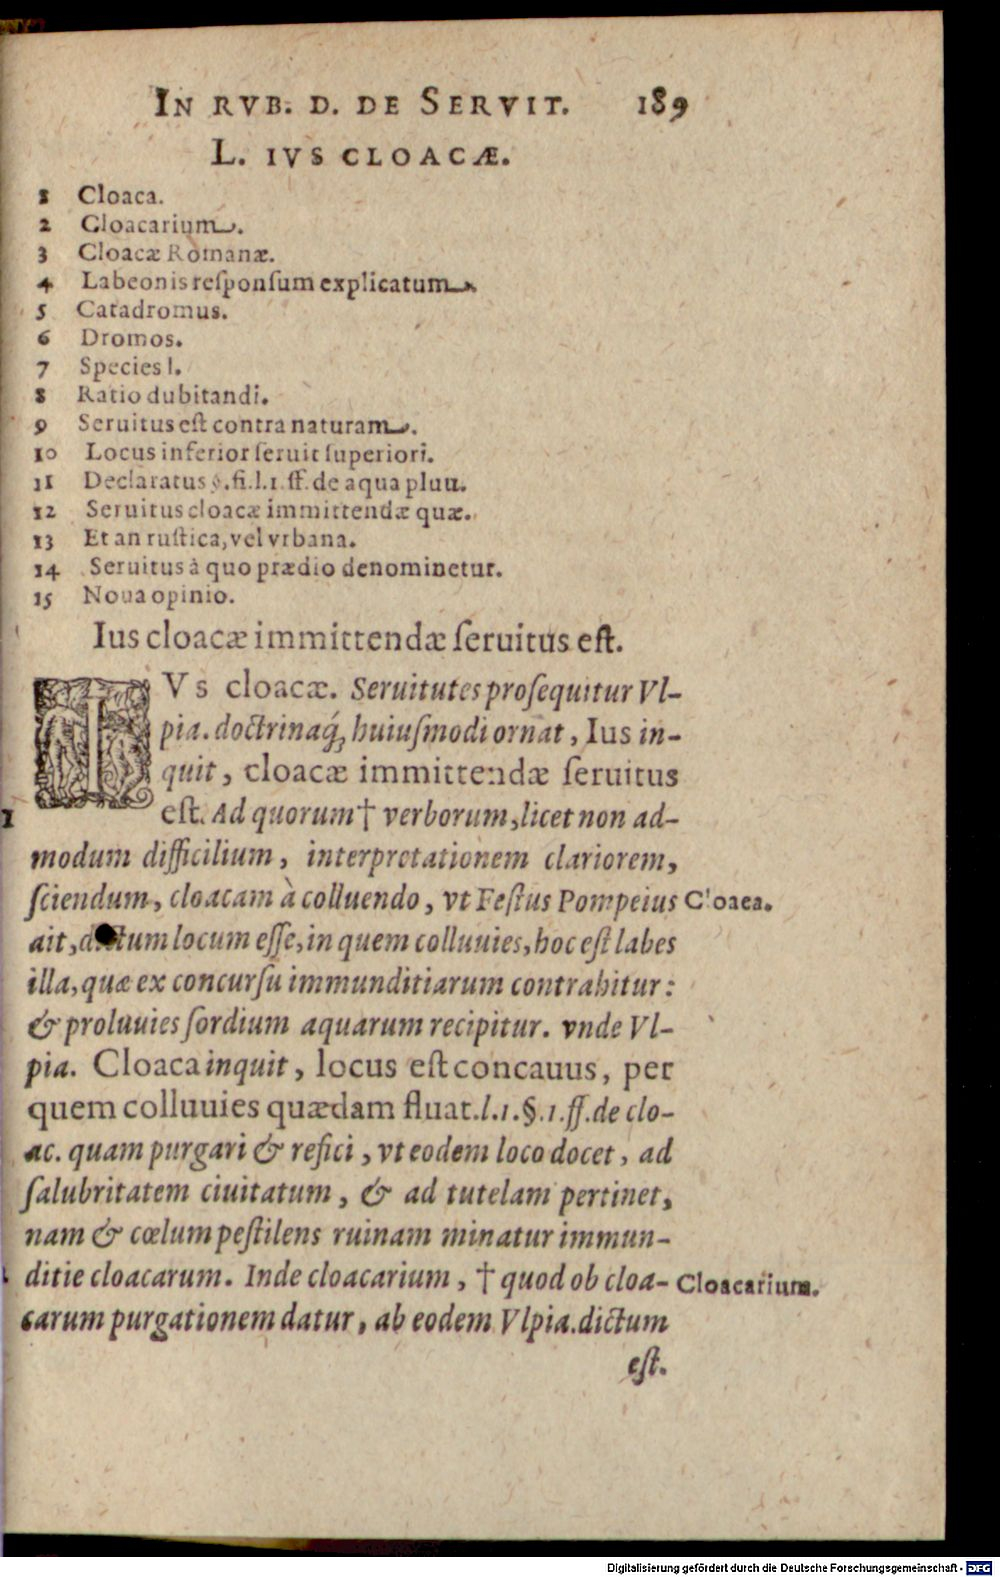 IN RVB. D. DE SERVIT. 189
L. IVS CLOACÆ.
1 Cloaca.
2 Cloacarium.
3 Cloacæ Romanæ.
4 Labeonis reſponſum explicatum
5 Catadromus.
6 Dromos.
7 Species l.
8 Ratio dubitandi.
9 Seruitus eſt contra naturam.
10 Locus inferior ſeruit ſuperiori.
11 Declaratus §. fi. l. 1. ff. de aqua pluu.
12 Seruitus cloacæ immittendæ quæ.
13 Et an ruſtica, vel vrbana.
14 Seruitus à quo prædio denominetur.
15 Noua opinio.
Ius cloacæ immittendæ ſeruitus eſt.
IVs cloacæ. Seruitutes proſequitur Vl-
pia. doctrinaq́; huiuſmodi ornat, Ius in-
quit, cloacæ immittendæ ſeruitus
1 eſt. Ad quorum † verborum, licet non ad-
modum difficilium, interpretationem clariorem,
ſciendum, cloacam à colluendo, vt Feſtus Pompeius Cloaca.
ait, dictum locum eſſe, in quem colluuies, hoc eſt labes
illa, quæ ex concurſu immunditiarum contrahitur:
& proluuies ſordium aquarum recipitur. vnde Vl-
pia. Cloaca inquit, locus eſt concauus, per
quem colluuies quædam fluat. l. 1. §. 1. ff. de clo-
ac. quam purgari & refici, vt eodem loco docet, ad
ſalubritatem ciuitatum, & ad tutelam pertinet,
nam & cœlum peſtilens ruinam minatur immun-
ditie cloacarum. Inde cloacarium, † quod ob cloa- Cloacarium.
carum purgationem datur, ab eodem Vlpia. dictum
eſt.
Digitalisierung gefördert durch die Deutsche Forschungsgemeinschaft - DFG